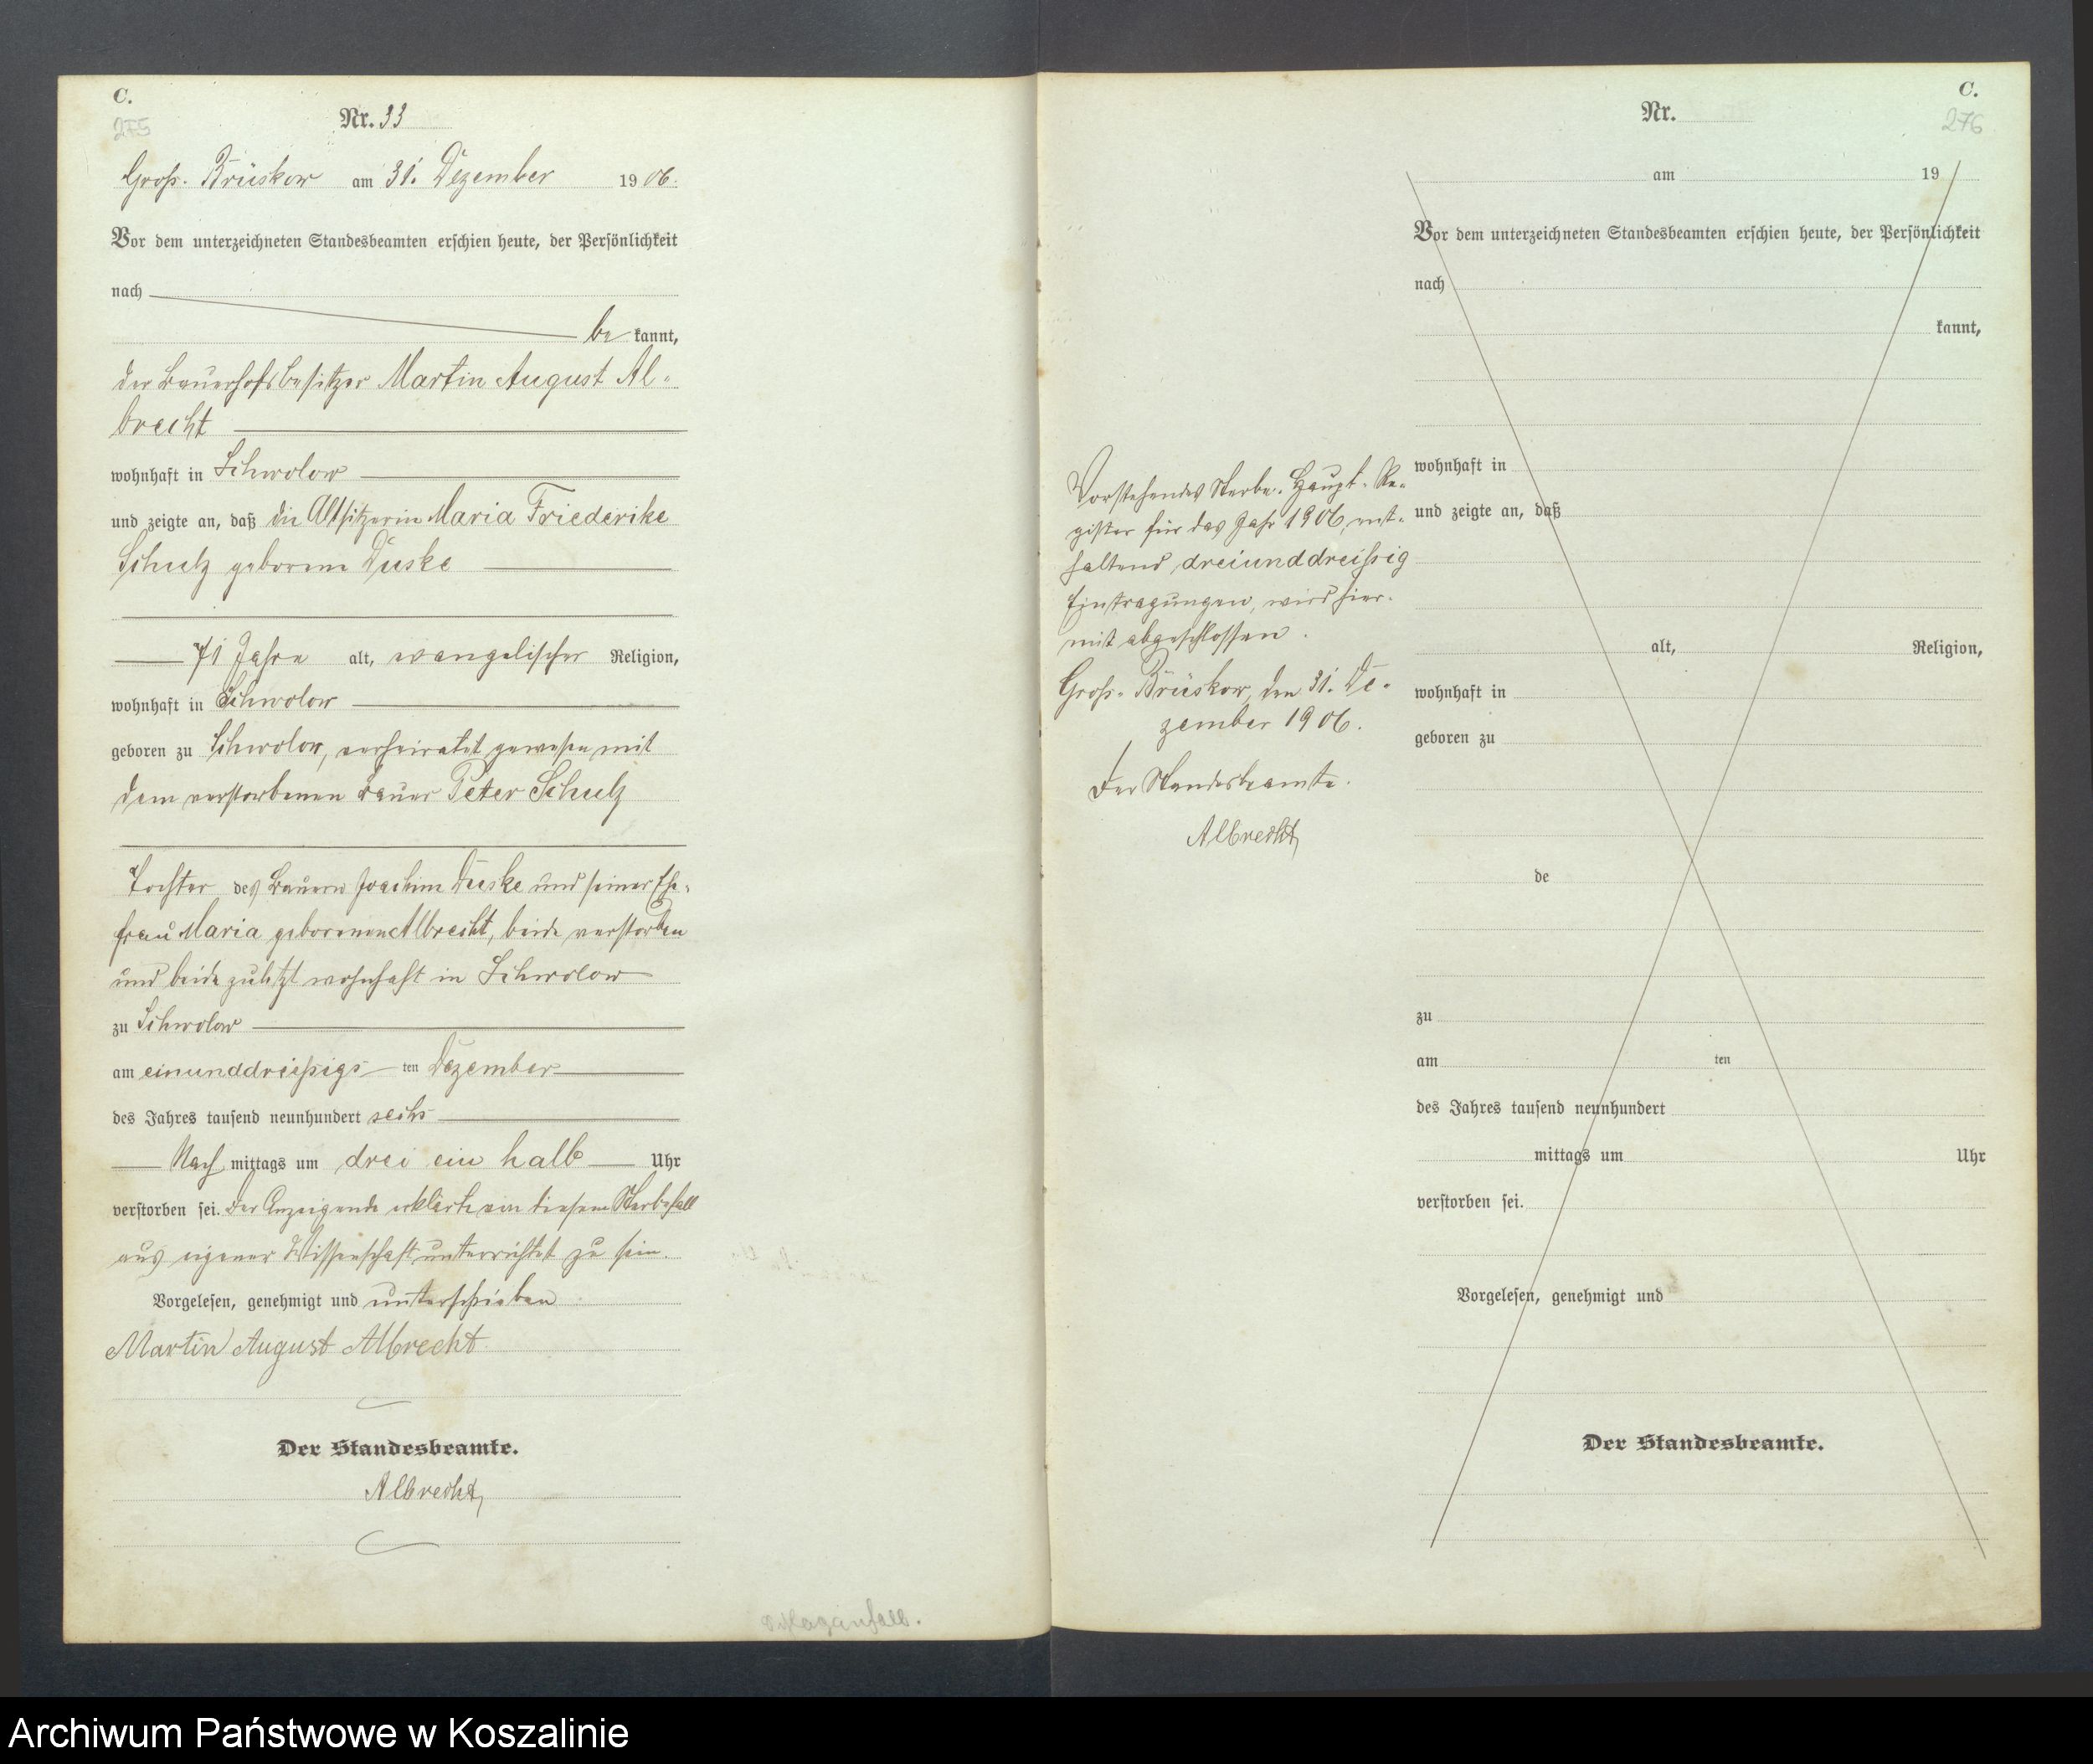 C.
275
Nr. 33
Groß-Brüskow am 31. Dezember 1906.
Vor dem unterzeichneten Standesbeamten erschien heute, der Persönlichkeit
nach
be kannt,
der Bauerhofsbesitzer Martin August Al-
brecht
wohnhaft in Schwolow
und zeigte an, daß die Altsitzerin Maria Friederike
Schulz geborene Duske
71 Jahre alt, evangelischer Religion,
wohnhaft in Schwolow
geboren zu Schwolow, verheiratet gewesen mit
dem verstorbenen Bauer Peter Schulz
Tochter des Bauern Joachim Duske und seiner Ehe-
frau Maria geborenen Albrecht, beide verstorben
und beide zuletzt wohnhaft in Schwolow
zu Schwolow
am einunddreißigs ten Dezember
des Jahres tausend neunhundert sechs
Nach mittags um drei ein halb Uhr
verstorben sei. Der Anzeigende erklärte von diesem Sterbefall
aus eigener Wissenschaft unterrichtet zu sein.
Vorgelesen, genehmigt und unterschrieben
Martin August Albrecht
Der Standesbeamte.
Albrecht
Schlaganfall.
C.
276
Nr.
am 19
Vor dem unterzeichneten Standesbeamten erschien heute, der Persönlichkeit
nach
kannt,
wohnhaft in
und zeigte an, daß
alt, Religion,
wohnhaft in
geboren zu
de
zu
am ten
des Jahres tausend neunhundert
mittags um Uhr
verstorben sei.
Vorgelesen, genehmigt und
Der Standesbeamte.
Vorstehendes Sterbe-Haupt-Re-
gister für das Jahr 1906, ent-
haltend dreiunddreißig
Eintragungen, wird hier-
mit abgeschlossen.
Groß-Brüskow, den 31. De-
zember 1906.
Der Standesbeamte.
Albrecht
Archiwum Państwowe w Koszalinie